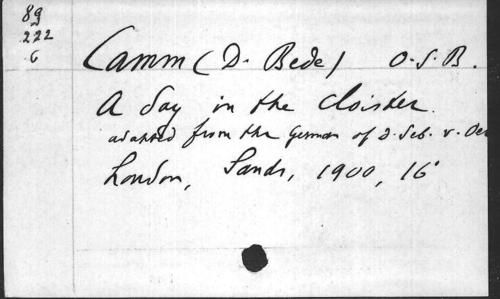 89
222
6
Camm (D. Bede) O.S.B.
A day in the cloister.
adapted from the German of D. Seb. v. Oer
London, Sands, 1900, 16°